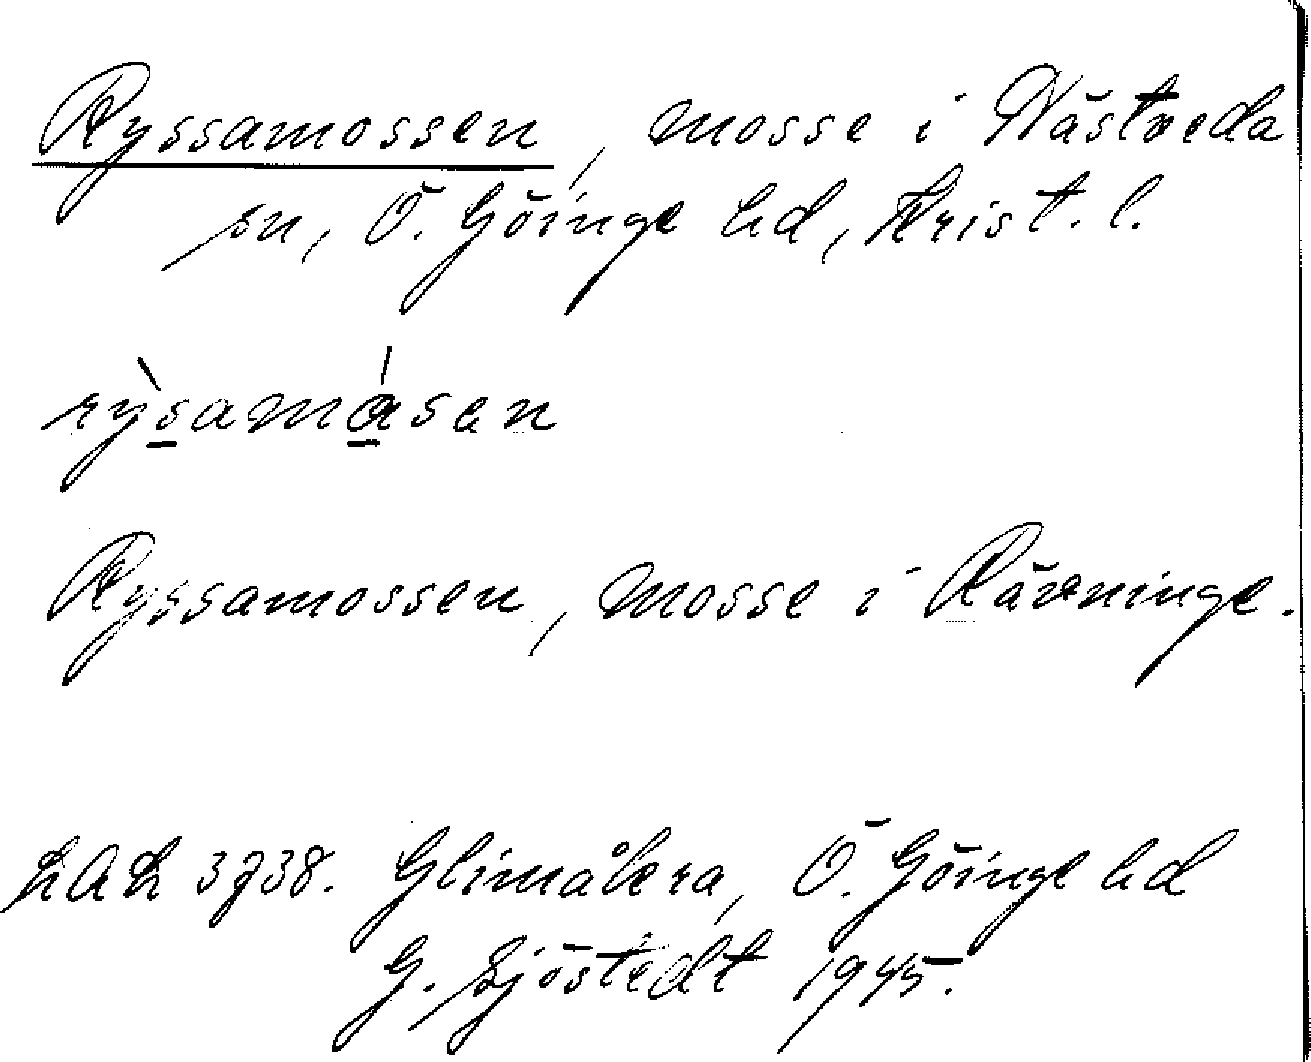 Ryssamossen, mosse i Nästveda
sn, Ö. Göinge hd, Krist. l.
rỳsamásen
Ryssamossen, mosse i Rävninge.
LAL 3738. Glimåkra, Ö. Göinge hd
G. Sjöstedt 1945.